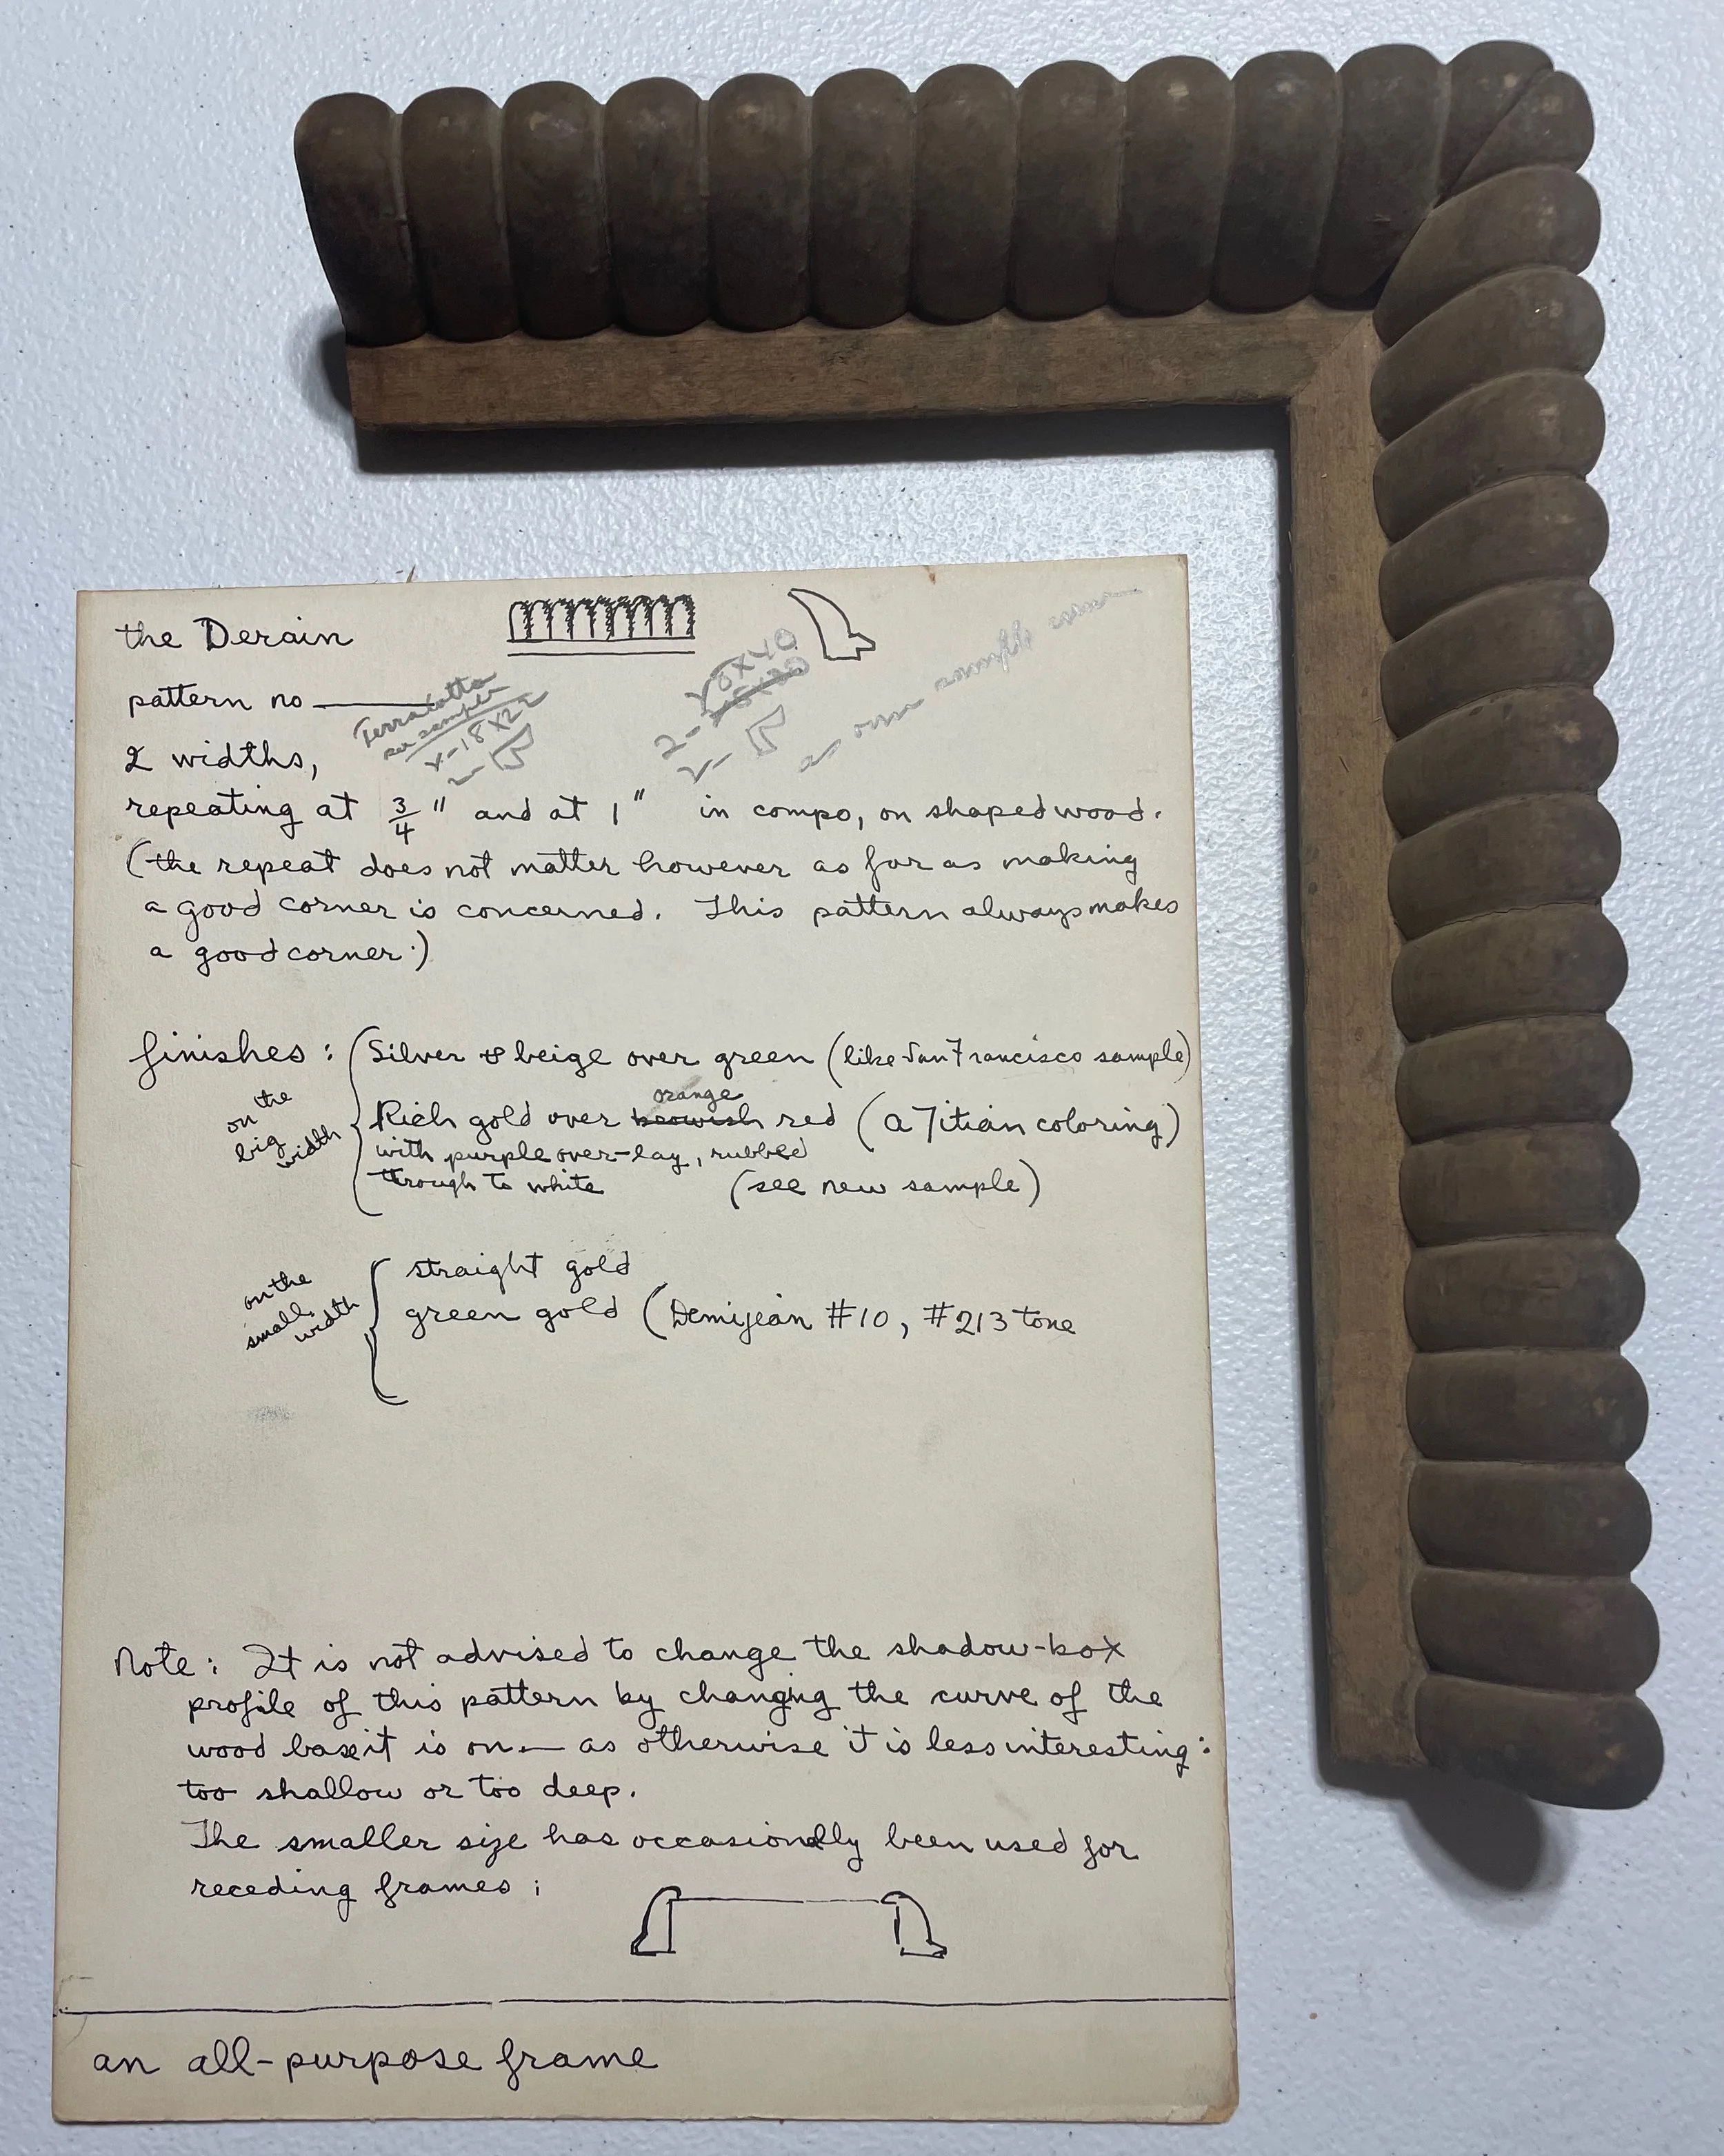 the Derain
pattern no
Terra Cotta
per sample
18 x 22
30 x 40
2 widths,
repeating at 3/4" and at 1" in compo, on shaped wood.
(the repeat does not matter however as far as making
a good corner is concerned. This pattern always makes
a good corner.)
finishes: (Silver & beige over green (like San Francisco sample)
on the big width
orange
Rich gold over brownish red (a Titian coloring)
with purple over-lay, rubbed
through to white (see new sample)
on the small width
straight gold
green gold (Demijean #10, #213 tone
Note: It is not advised to change the shadow-box
profile of this pattern by changing the curve of the
wood base it is on — as otherwise it is less interesting:
too shallow or too deep.
The smaller size has occasionally been used for
receding frames:
an all-purpose frame